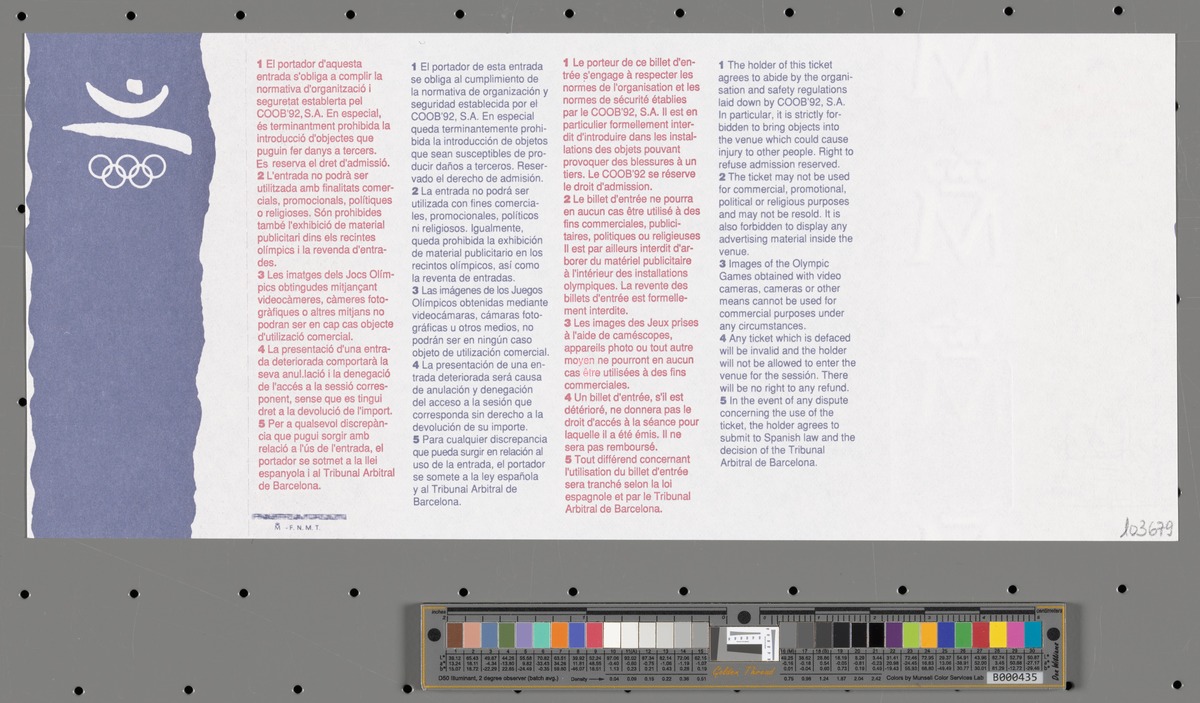 1 El portador d'aquesta
entrada s'obliga a complir la
normativa d'organització i
seguretat establerta pel
COOB'92, S.A. En especial,
és terminantment prohibida la
introducció d'objectes que
puguin fer danys a tercers.
Es reserva el dret d'admissió.
2 L'entrada no podrà ser
utilitzada amb finalitats comer-
cials, promocionals, polítiques
o religioses. Són prohibides
també l'exhibició de material
publicitari dins els recintes
olímpics i la revenda d'entra-
des.
3 Les imatges dels Jocs Olím-
pics obtingudes mitjançant
videocàmeres, càmeres foto-
gràfiques o altres mitjans no
podran ser en cap cas objecte
d'utilizació comercial.
4 La presentació d'una entra-
da deteriorada comportarà la
seva anul.lació i la denegació
de l'accés a la sessió corres-
ponent, sense que es tingui
dret a la devolució de l'import.
5 Per a qualsevol discrepàn-
cia que pugui sorgir amb
relació a l'ús de l'entrada, el
portador se sotmet a la llei
espanyola i al Tribunal Arbitral
de Barcelona.
M - F. N. M. T.
1 El portador de esta entrada
se obliga al cumplimiento de
la normativa de organización y
seguridad establecida por el
COOB'92, S.A. En especial
queda terminantemente prohi-
bida la introducción de objetos
que sean susceptibles de pro-
ducir daños a terceros. Reser-
vado el derecho de admisión.
2 La entrada no podrá ser
utilizada con fines comercia-
les, promocionales, políticos
ni religiosos. Igualmente,
queda prohibida la exhibición
de material publicitario en los
recintos olímpicos, así como
la reventa de entradas.
3 Las imágenes de los Juegos
Olímpicos obtenidas mediante
videocámaras, cámaras foto-
gráficas u otros medios, no
podrán ser en ningún caso
objeto de utilización comercial.
4 La presentación de una en-
trada deteriorada será causa
de anulación y denegación
del acceso a la sesión que
corresponda sin derecho a la
devolución de su importe.
5 Para cualquier discrepancia
que pueda surgir en relación al
uso de la entrada, el portador
se somete a la ley española
y al Tribunal Arbitral de
Barcelona.
1 Le porteur de ce billet d'en-
trée s'engage à respecter les
normes de l'organisation et les
normes de sécurité établies
par le COOB'92, S.A. Il est en
particulier formellement inter-
dit d'introduire dans les instal-
lations des objets pouvant
provoquer des blessures à un
tiers. Le COOB'92 se réserve
le droit d'admission.
2 Le billet d'entrée ne pourra
en aucun cas être utilisé à des
fins commerciales, publici-
taires, politiques ou religieuses
Il est par ailleurs interdit d'ar-
borer du matériel publicitaire
à l'intérieur des installations
olympiques. La revente des
billets d'entrée est formelle-
ment interdite.
3 Les images des Jeux prises
à l'aide de caméscopes,
appareils photo ou tout autre
moyen ne pourront en aucun
cas être utilisées à des fins
commerciales.
4 Un billet d'entrée, s'il est
détérioré, ne donnera pas le
droit d'accés à la séance pour
laquelle il a été émis. Il ne
sera pas remboursé.
5 Tout différend concernant
l'utilisation du billet d'entrée
sera tranché selon la loi
espagnole et par le Tribunal
Arbitral de Barcelona.
1 The holder of this ticket
agrees to abide by the organi-
sation and safety regulations
laid down by COOB'92, S.A.
In particular, it is strictly for-
bidden to bring objects into
the venue which could cause
injury to other people. Right to
refuse admission reserved.
2 The ticket may not be used
for commercial, promotional,
political or religious purposes
and may not be resold. It is
also forbidden to display any
advertising material inside the
venue.
3 Images of the Olympic
Games obtained with video
cameras, cameras or other
means cannot be used for
commercial purposes under
any circumstances.
4 Any ticket which is defaced
will be invalid and the holder
will not be allowed to enter the
venue for the sessión. There
will be no right to any refund.
5 In the event of any dispute
concerning the use of the
ticket, the holder agrees to
submit to Spanish law and the
decision of the Tribunal
Arbitral de Barcelona.
103679
inches
centimeters
D50 Illuminant, 2 degree observer (batch avg.)
Density
Golden Thread
Colors by Munsell Color Services Lab
B000435